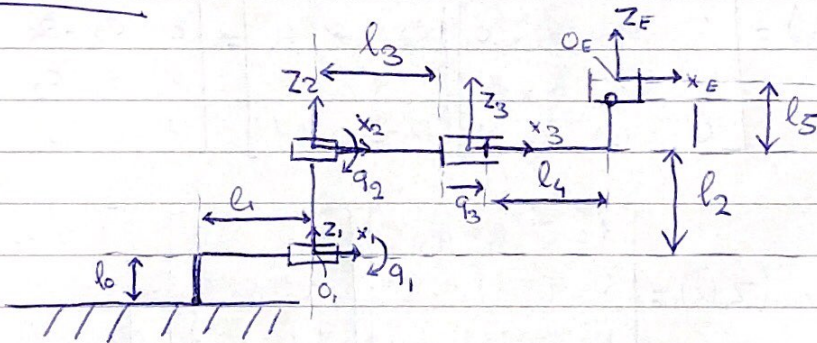 Z_E
O_E
x_E
l_3
Z_2
x_2
q_2
Z_3
x_3
l_5
q_3
l_4
l_2
l_1
Z_1
x_1
q_1
O_1
l_0